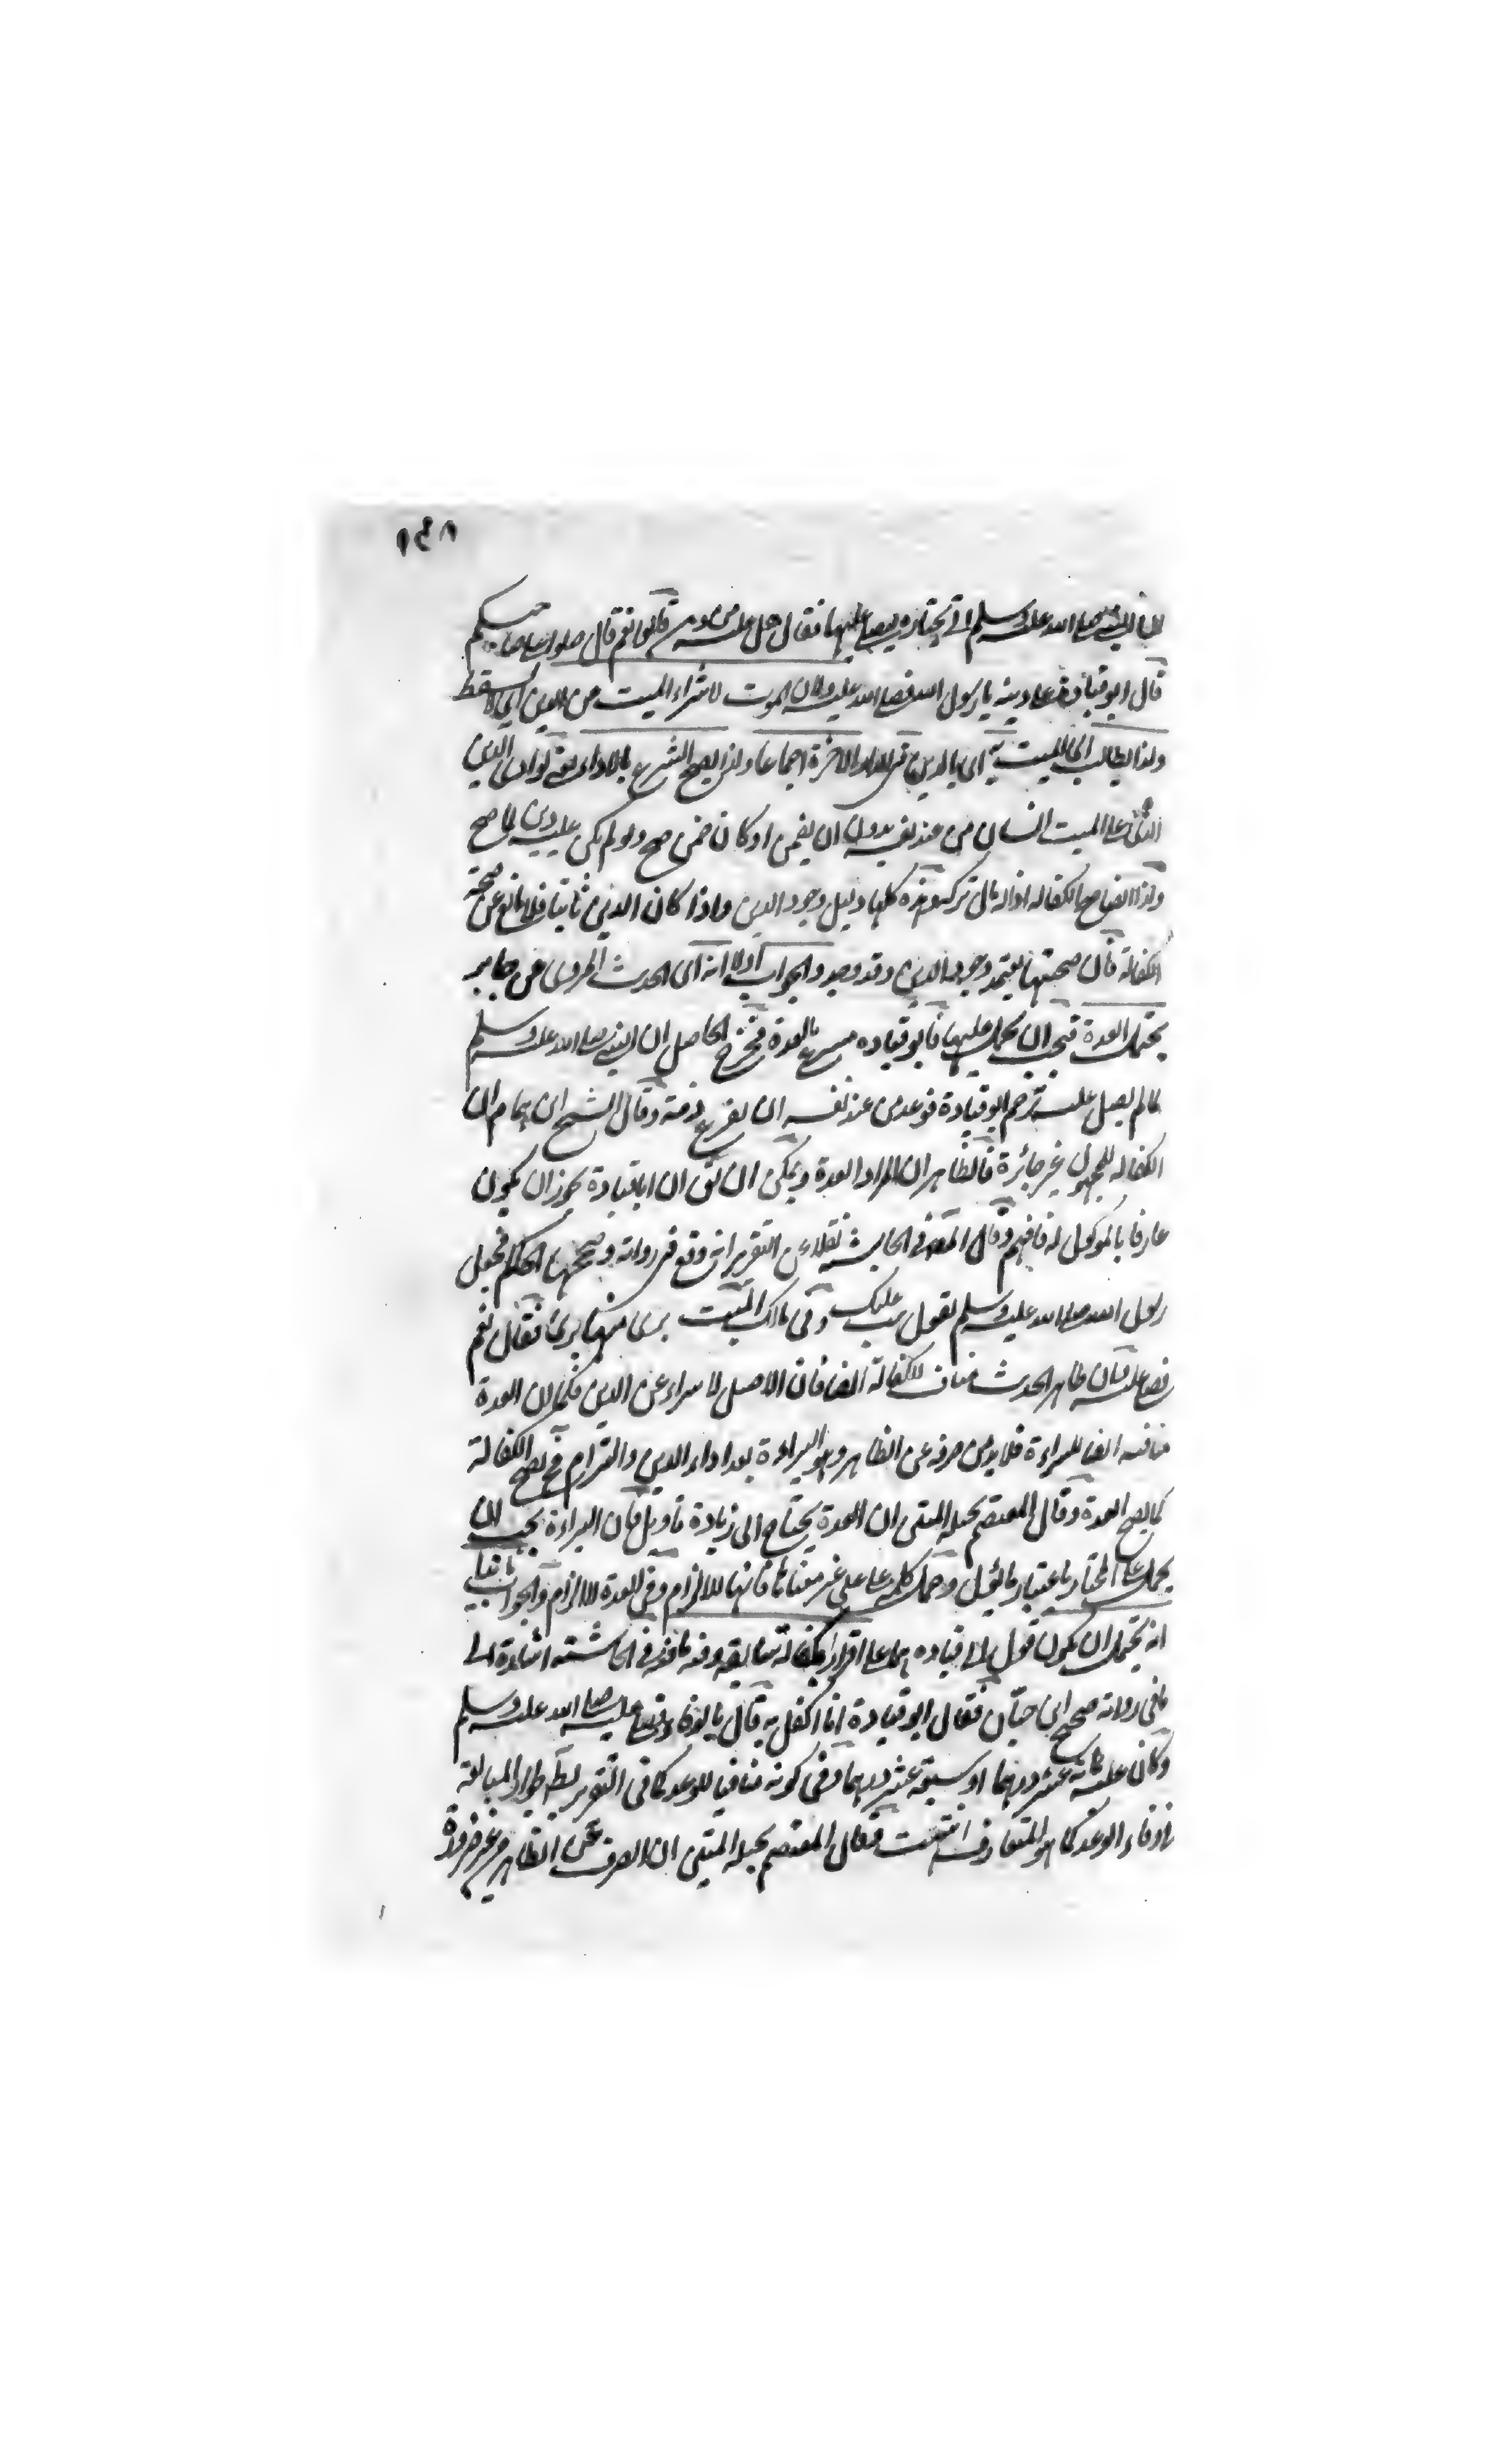 ١٤٨
ان النبي صلى الله عليه وسلم اتي بجنازة ليصلي عليها فقال هل عليه من دين قالوا نعم قال صلوا على صاحبكم
قال ابو قتادة على دينه يا رسول الله فصلى الله عليه ولان الموت لا يبرئ الميت من الدين اي لا يسقط
ولذا يطالب الميت به اي بالدين في الدار الآخرة اجماعا ولذا يصح التبرع بالاداء حتى لو ادى الدين
الذي على الميت انسان من عند نفسه بدون ان يضمن او كان ضمن صح ولو لم يكن عليه دين لما صح
ولذا الكفالة اذا له مال تركه وهذه كلها دليل وجود الدين واذا كان الدين ثابتا فلا مانع عن صحة
الكفالة فان صحتها يعتمد وجود الدين وقد وجد والجواب اولا انه اي الحديث المروي عن جابر
يحتمل العدة فيجب ان يحمل عليها فابو قتاده بالعدة فح الحاصل ان النبي صلى الله عليه وسلم
لما لم يصل عليه ترحم ابو قتادة فوعد من عند نفسه ان يفرغ ذمته وقال الشيخ ابن همام ان
الكفالة للمجهول غير جائزة فالظاهر ان المراد العدة ويمكن ان يق ان ابا قتادة يجوز ان يكون
عارفا بالمكفول له فافهم وقال المصنف في الحاشية نقلا عن التقرير انه وقع في رواية وصححها الحاكم فجعل
رسول الله صلى الله عليه وسلم يقول هي عليك وفي مالك الميت منها بريئ فقال نعم
فصلى عليه فان ظاهر الحديث مناف للكفالة ايضا فان الاصيل لا يبرأ عن الدين فكما ان العدة
منافية ايضا للبراءة فلا بد من صرفه عن الظاهر وهو البراءة بعد اداء الدين والتزام فح يصح الكفالة
كما يصح العدة وقال المعتصم بحبله المتين ان العدة يحتاج الى زيادة تأويل فان البراءة يجب ان
يحمل على المجاز باعتبار ما يؤول وحمل كلمة على على غير معناها فانها للالزام وفي العدة لا الزام والجواب ثانيا
انه يحتمل ان يكون قول ابي قتاده هما على اقرار بكفالة سابقة وفيه ما فيه في الحاشية اشارة الى
ما في رواية صحيح ابن حبان فقال ابو قتادة انا اكفل به قال بالوفاء فصلى عليه صلى الله عليه وسلم
وكان عليه ثمانية عشر درهما او سبعة عشر درهما وفي كونه منافيا للوعد كما في التقرير نظر لجواز المبالغة
في وفاء الوعد كما هو المتعارف انتهت فقال المعتصم بحبله المتين ان الصرف عن الظاهر من غير ضرورة